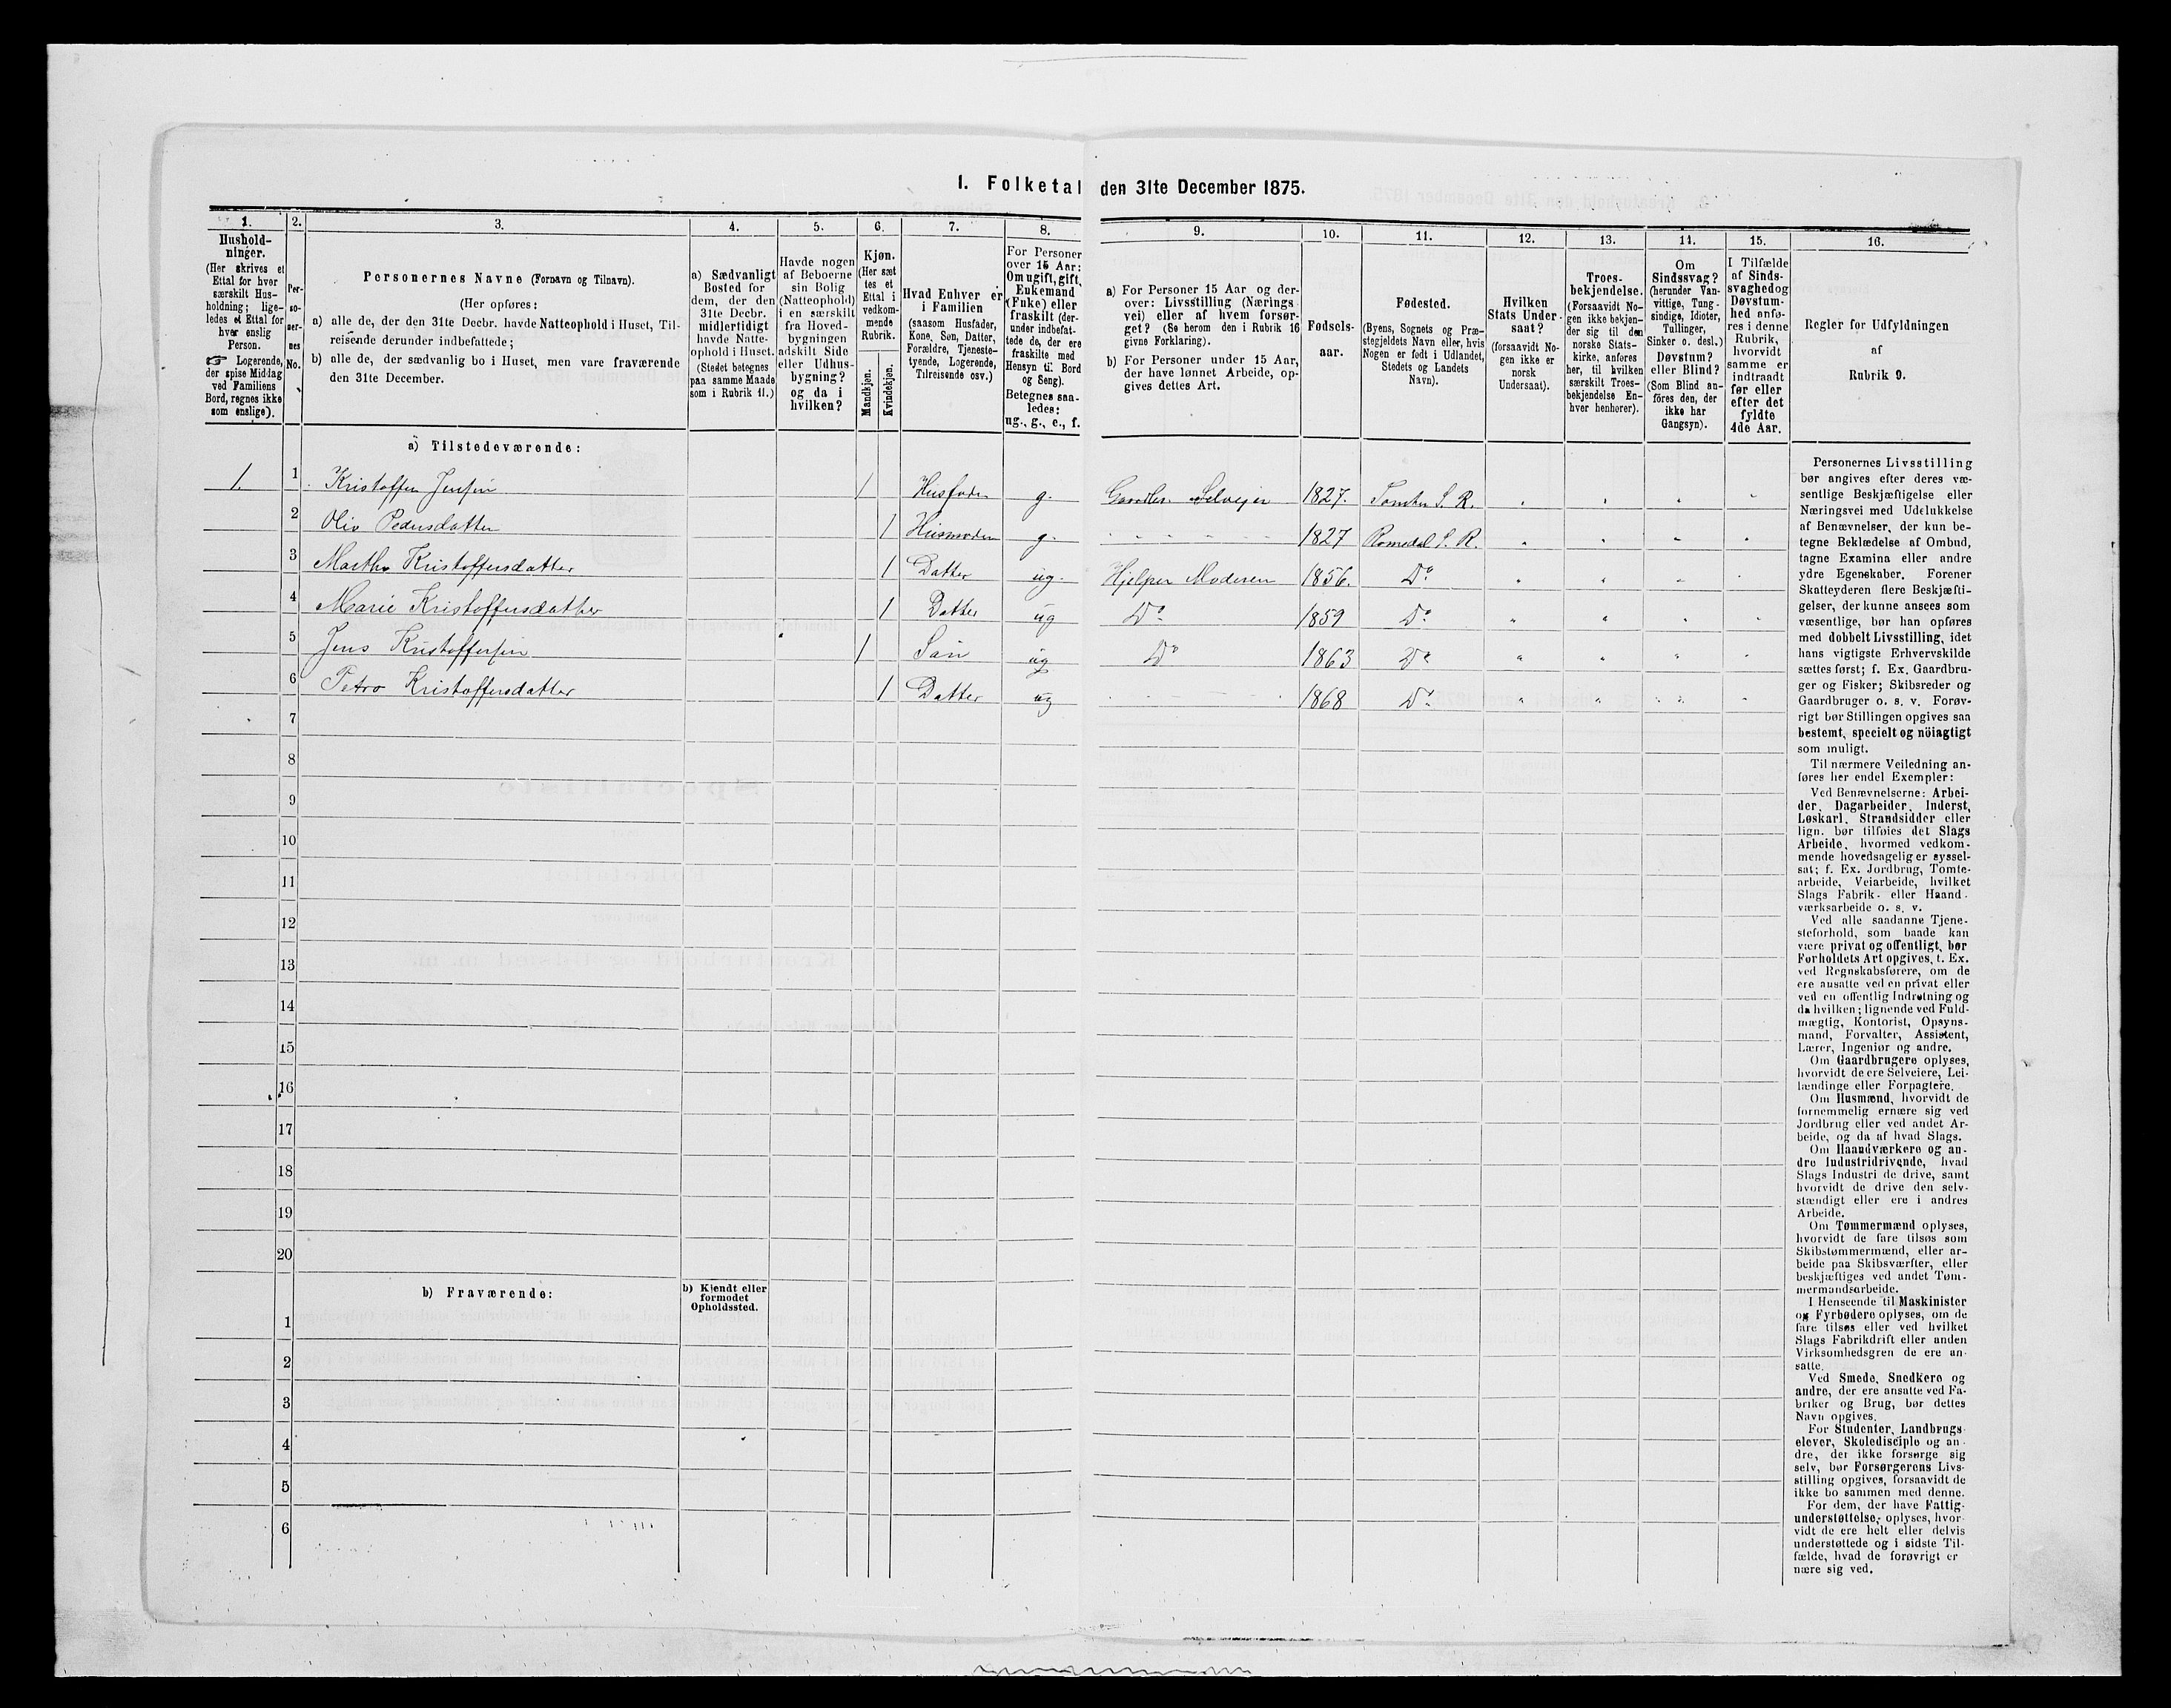 1. Folketal den 31te December 1875.
1. 2. 3. 4. 5. 6. 7. 8. 9. 10. 11. 12. 13. 14. 15. 16.
Hushold-
ninger.
(Her skrives et
Ettal for hver
særskilt Hus-
holdning; lige-
ledes et Ettal for
hver enslig
Person.
☞ Logerende,
der spise Middag
ved Familiens
Bord, regnes ikke
som enslige).
Per-
so-
ner-
nes
No.
Personernes Navne (Fornavn og Tilnavn).
(Her opføres:
a) alle de, der den 31te Decbr. havde Natteophold i Huset, Til-
reisende derunder indbefattede;
b) alle de, der sædvanlig bo i Huset, men vare fraværende
den 31te December.
a) Sædvanligt
Bosted for
dem, der den
31te Decbr.
midlertidigt
havde Natte-
ophold i Huset.
(Stedet betegnes
paa samme Maade
som i Rubrik 11.)
Havde nogen
af Beboerne
sin Bolig
(Natteophold)
i en særskilt
fra Hoved-
bygningen
adskilt Side
eller Udhus-
bygning?
og da i
hvilken?
Kjøn.
(Her sæt
tes et
Ettal i
vedkom-
mende
Rubrik.
Mandkjøn.
Kvindekjøn.
Hvad Enhver er
i Familien
(saasom Husfader,
Kone, Søn, Datter,
Forældre, Tjeneste-
tyende, Logerende,
Tilreisende osv.)
For Personer
over 15 Aar:
Om ugift, gift,
Enkemand
(Enke) eller
fraskilt (der-
under indbefat-
tede de, der ere
fraskilte med
Hensyn til Bord
og Seng).
Betegnes saa-
ledes:
ug., g., e., f.
a) For Personer 15 Aar og der-
over: Livsstilling (Nærings
vei) eller af hvem forsør-
get? (Se herom den i Rubrik 16
givne Forklaring).
b) For Personer under 15 Aar,
der have lønnet Arbeide, op-
gives dettes Art.
Fødsels-
aar.
Fødested.
(Byens, Sognets og Præ-
stegjeldets Navn eller, hvis
Nogen er født i Udlandet,
Stedets og Landets
Navn).
Hvilken
Stats Under-
saat?
(forsaavidt No-
gen ikke er
norsk
Undersaat).
Troes-
bekjendelse.
(Forsaavidt No-
gen ikke bekjen-
der sig til den
norske Stats-
kirke, anføres
her, til hvilken
særskilt Troes-
bekjendelse En-
hver henhører).
Om
Sindssvag?
(herunder Van-
vittige, Tung-
sindige, Idioter,
Tullinger,
Sinker o. desl.)
Døvstum?
eller Blind?
(Som Blind an-
føres den, der
ikke har
Gangsyn).
I Tilfælde
af Sinds-
svaghed og
Døvstum-
hed anfø-
res i denne
Rubrik,
hvorvidt
samme er
indtraadt
før eller
efter det
fyldte
4de Aar.
Regler for Udfyldningen
af
Rubrik 9.
a) Tilstedeværende:
1. 1 Kristoffer Jensen 1 Husfader g. Gaardbr. Selvejer 1827. S. R.
2 Oliv Pedersdatter 1 Husmoder g. 1827 Romedal S. R.
3 Marthe Kristoffersdatter 1 Datter ug. Hjelper Moderen 1856. Do
4 Marie Kristoffersdatter 1 Datter ug Do 1859 Do
5 Jens Kristoffersen 1 Søn ug Do 1863 Do
6 Petra Kristoffersdatter 1 Datter ug 1868 Do
7
8
9
10
11
12
13
14
15
16
17
18
19
20
b) Fraværende:
b) Kjendt eller
formodet
Opholdssted.
1
2
3
4
5
6
Personernes Livsstilling
bør angives efter deres væ-
sentlige Beskjæftigelse eller
Næringsvei med Udelukkelse
af Benævnelser, der kun be-
tegne Beklædelse af Ombud,
tagne Examina eller andre
ydre Egenskaber. Forener
Skatteyderen flere Beskjæfti-
gelser, der kunne ansees som
væsentlige, bør han opføres
med dobbelt Livsstilling, idet
hans vigtigste Erhvervskilde
sættes først; f. Ex. Gaardbru-
ger og Fisker; Skibsreder og
Gaardbruger o. s. v. Forøv-
rigt bør Stillingen opgives saa
bestemt, specielt og nöiagtigt
som muligt.
Til nærmere Veiledning an-
føres her endel Exempler:
Ved Benævnelserne: Arbei-
der, Dagarbeider, Inderst,
Løskarl, Strandsidder eller
lign. bør tilføies det Slags
Arbeide, hvormed vedkom-
mende hovedsagelig er syssel-
sat; f. Ex. Jordbrug, Tomte-
arbeide, Veiarbeide, hvilket
Slags Fabrik- eller Haand-
værksarbeide o. s. v.
Ved alle saadanne Tjene-
steforhold, som baade kan
være privat og offentligt, bør
Forholdets Art opgives, t. Ex.
ved Regnskabsførere, om de
ere ansatte ved en privat eller
ved en offentlig Indretning og
da hvilken; lignende ved Fuld-
mægtig, Kontorist, Opsyns-
mand, Forvalter, Assistent,
Lærer, Ingeniør og andre.
Om Gaardbrugere oplyses,
hvorvidt de ere Selveiere, Lei-
lændinge eller Forpagtere.
Om Husmænd, hvorvidt de
fornemmelig ernære sig ved
Jordbrug eller ved andet Ar-
beide, og da af hvad Slags.
Om Haandværkere og an-
dre Industridrivende, hvad
Slags Industri de drive, samt
hvorvidt de drive den selv-
stændigt eller ere i andres
Arbeide.
Om Tømmermænd oplyses,
hvorvidt de fare tilsøs som
Skibstømmermænd, eller ar-
beide paa Skibsværfter, eller
beskjæftiges ved andet Tøm-
mermandsarbeide.
I Henseende til Maskinister
og Fyrbødere oplyses, om de
fare tilsøs eller ved hvilket
Slags Fabrikdrift eller anden
Virksomhedsgren de ere an-
satte.
Ved Smede, Snedkere og
andre, der ere ansatte ved Fa-
briker og Brug, bør dettes
Navn opgives.
For Studenter, Landbrugs-
elever, Skoledisciple og an-
dre, der ikke forsørge sig
selv, bør Forsørgerens Livs-
stilling opgives, forsaavidt de
ikke bo sammen med denne.
For dem, der have Fattig-
understøttelse, oplyses, hvor-
vidt de ere helt eller delvis
understøttede og i sidste Til-
fælde, hvad de forøvrigt er
nære sig ved.